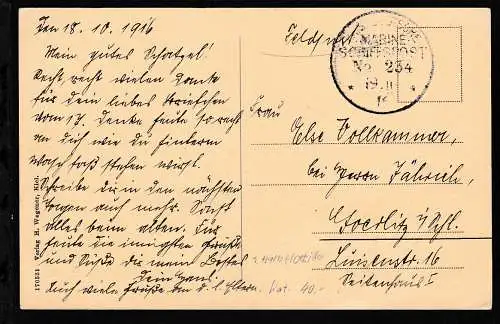 Den 18.10.1916
Mein gutes Schatzel!
Recht, recht vielen Dank
für Dein liebes Briefchen
vom 17. Denke heute so recht
an Dich wie Du hinterm
stehen wirst.
Schreibe Dir in den nächsten
Tagen auch mehr. Sonst
alles beim alten. Für
heute die innigsten Grüße
und Küße Dir mein
Dein Hans.
Auch viele Grüße an d. l. Eltern.
170531 Verlag H. Wegener, Kiel.
Feldpost
MARINE
SCHIFFSPOST
No 234
* 19.10 *
16
Frau
Else Vollkammer,
bei Herrn Jährich,
Goerlitz i/Schl.
Luisenstr. 16
Seitenhaus I
Kat. 40.-